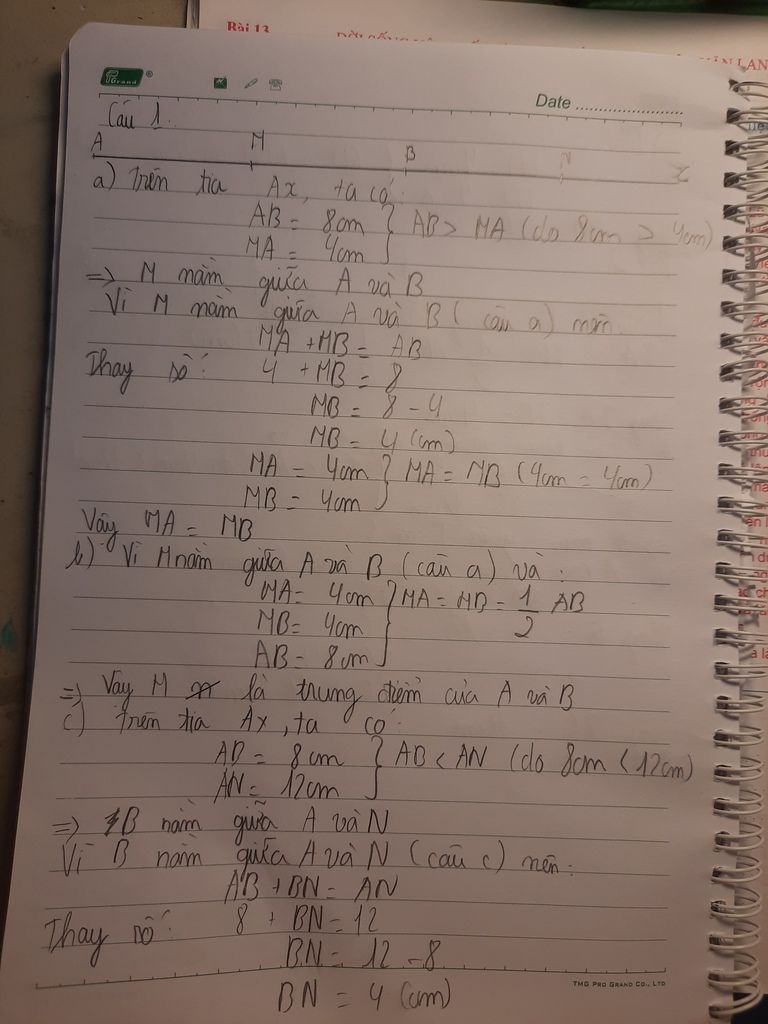 Bài 13
PGrand ®
Date ........................
Câu 1.
A M B N x
a) Trên tia Ax, ta có:
AB = 8cm } AB > MA (do 8cm > 4cm)
MA = 4cm
=> M nằm giữa A và B
Vì M nằm giữa A và B (câu a) nên:
MA + MB = AB
Thay số: 4 + MB = 8
MB = 8 - 4
MB = 4 (cm)
MA = 4cm } MA = MB (4cm = 4cm)
MB = 4cm
Vậy MA = MB
b) Vì M nằm giữa A và B (câu a) và:
MA = 4cm } MA = MB = 1/2 AB
MB = 4cm
AB = 8cm
=> Vậy M là trung điểm của A và B
c) Trên tia Ax, ta có:
AB = 8cm } AB < AN (do 8cm < 12cm)
AN = 12cm
=> B nằm giữa A và N
Vì B nằm giữa A và N (câu c) nên:
AB + BN = AN
Thay số: 8 + BN = 12
BN = 12 - 8
BN = 4 (cm)
TMG PRO GRAND CO., LTD